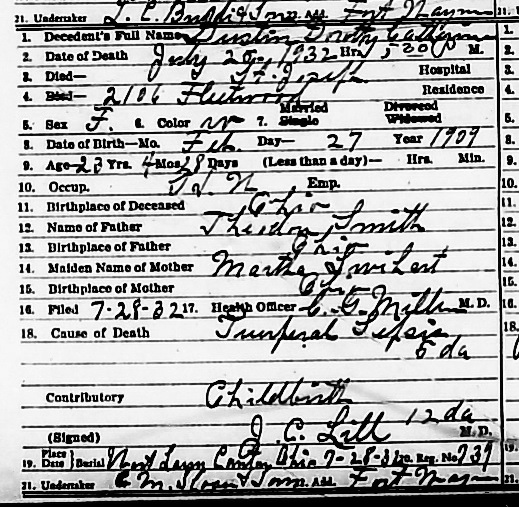 21. Undertaker L. C. & Sons Add. Fort Wayne
1. Decedent's Full Name Dustin Dorothy Catherine
2. Date of Death July 25, 1932 Hr. 5:30 P M.
3. Died— St. Joseph Hospital
4. Died— 2106 Fleetwood Residence
5. Sex F. 6. Color W 7. Married Single Divorced Widowed
8. Date of Birth—Mo. Feb. Day— 27 Year 1909
9. Age—23 Yrs. 4 Mos. 28 Days (Less than a day)— Hrs. Min.
10. Occup. Emp.
11. Birthplace of Deceased Ohio
12. Name of Father Smith
13. Birthplace of Father Ohio
14. Maiden Name of Mother Martha Swihart
15. Birthplace of Mother Ohio
16. Filed 7-28-32 17. Health Officer C. G. M. D.
18. Cause of Death Puerperal Sepsis
5 da
Contributory Childbirth
12 da
(Signed) J. C. M. D.
19. Place Date } Burial West Lawn Canton Ohio 7-28-32 20. Reg. No. 739
21. Undertaker C. M. Sloan & Sons Add. Fort Wayne